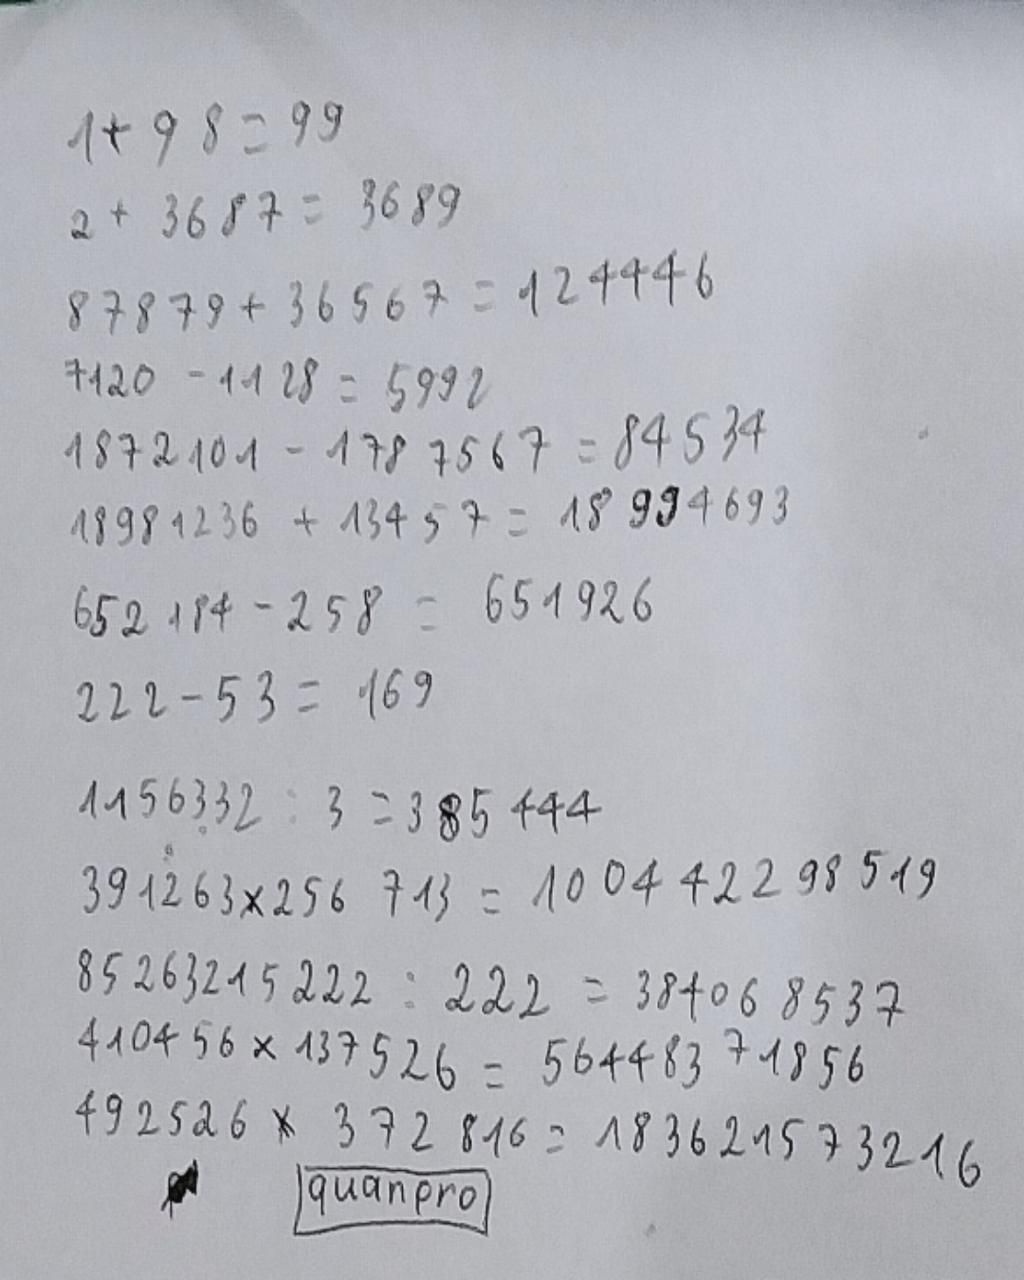 1+98=99
2+3687=3689
87879+36567=124446
7120-1128=5992
1872101-1787567=84534
18981236+13457=18994693
652184-258=651926
222-53=169
1156332:3=385444
391263x256713=100442298519
85263215222:222=384068537
410456x137526=56448371856
492526x372816=183621573216
quanpro